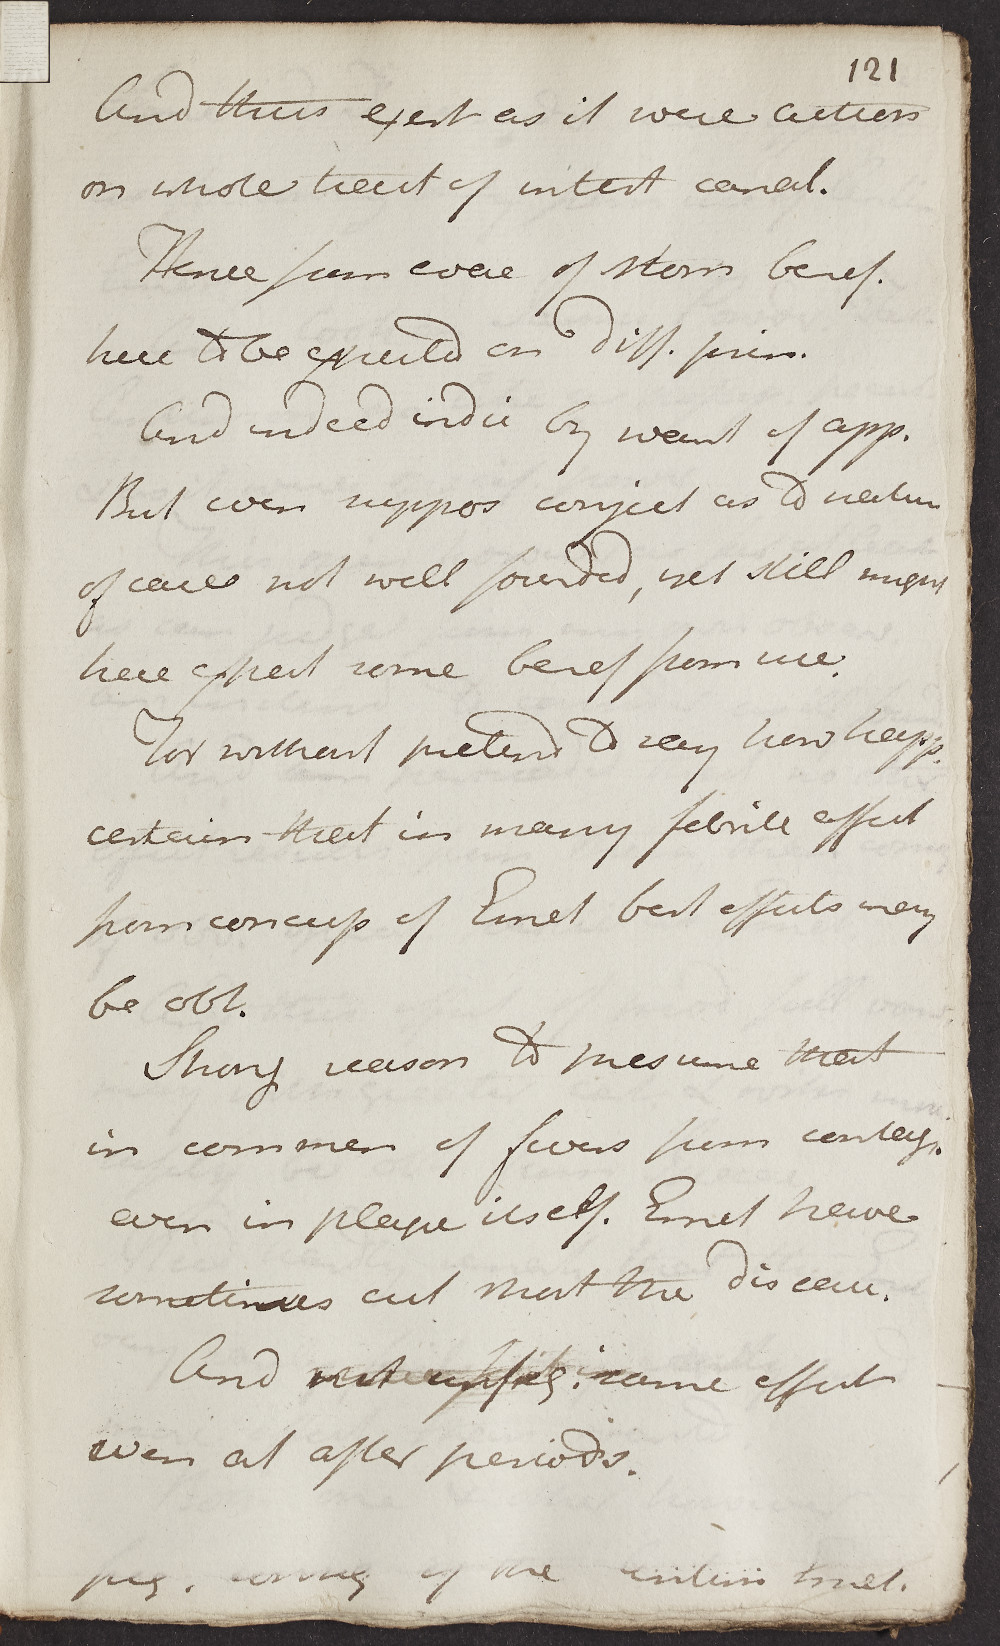 121
And thus exert as it were action
on whole tract of intest canal.
Hence from evac of stom benef.
here to be expected on diff. prin.
And indeed indic by want of app.
But even suppos conject as to nature
of case not well founded, yet still might
here expect some benef from use.
For without pretend to say how happ.
certain that in many febrile affect
from concuss of Emet best effects may
be obt.
Strong reason to presume that
in commen of fevers from contag.
even in plague itself. Emet have
sometimes cut short the disease.
And not same effect
even at after periods.
of the Emet.